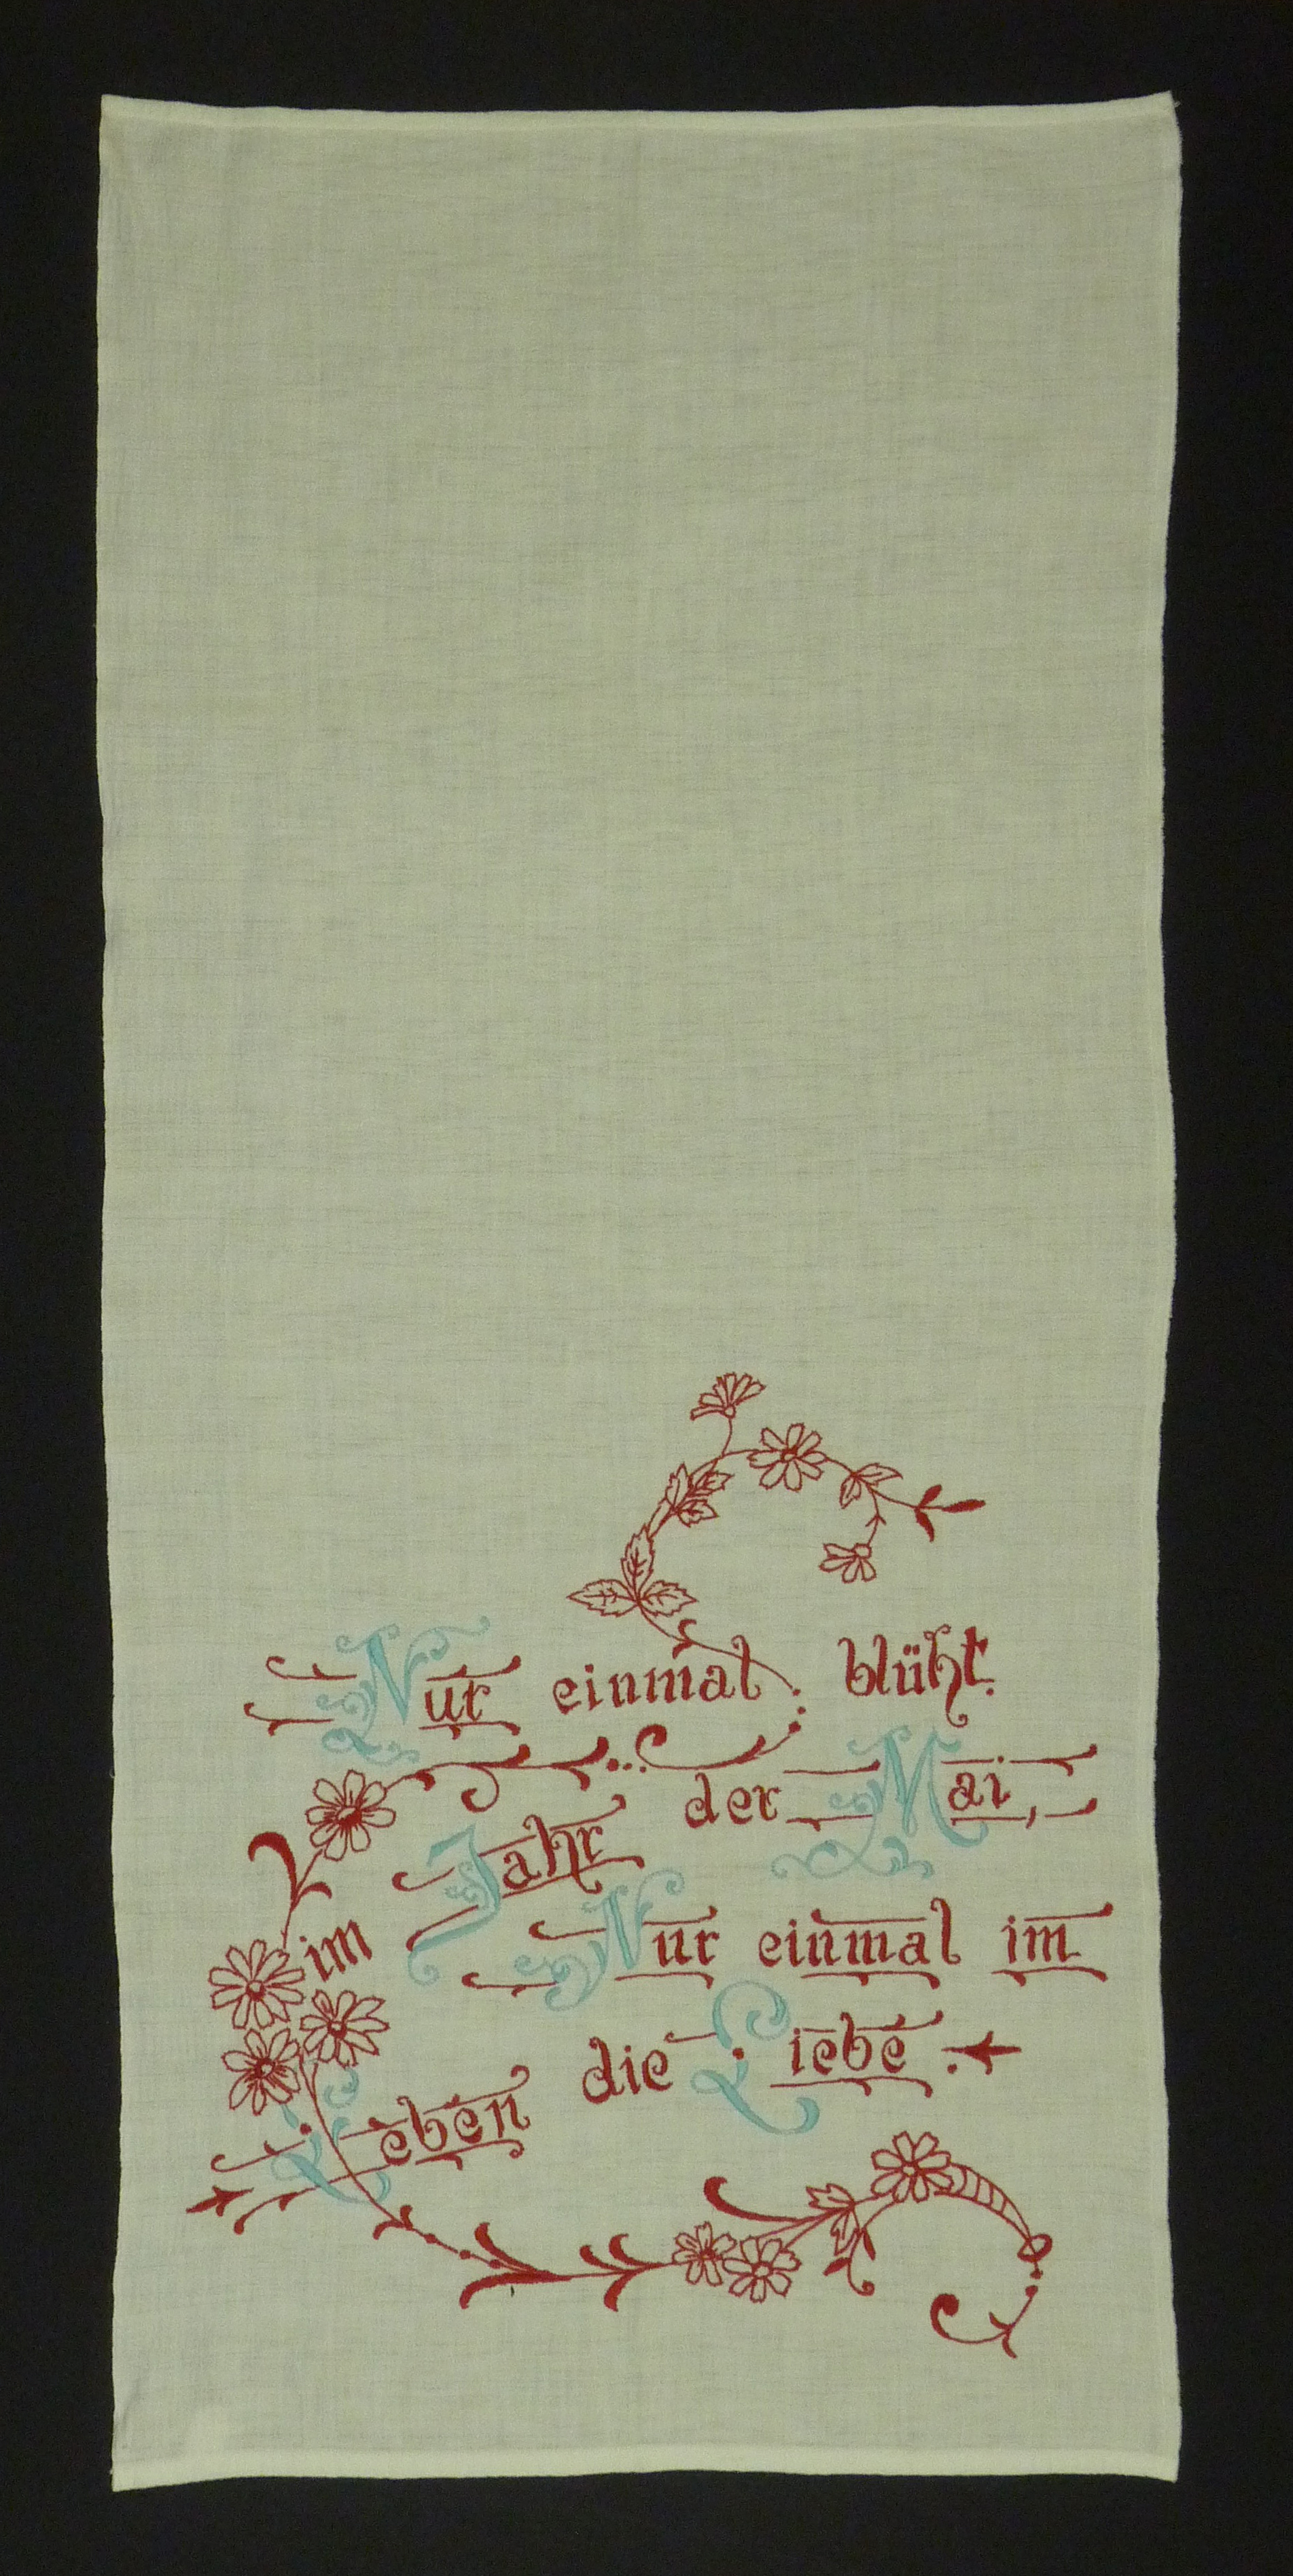 Nur einmal blüht.
im Jahr der Mai,
Nur einmal im
Leben die Liebe.